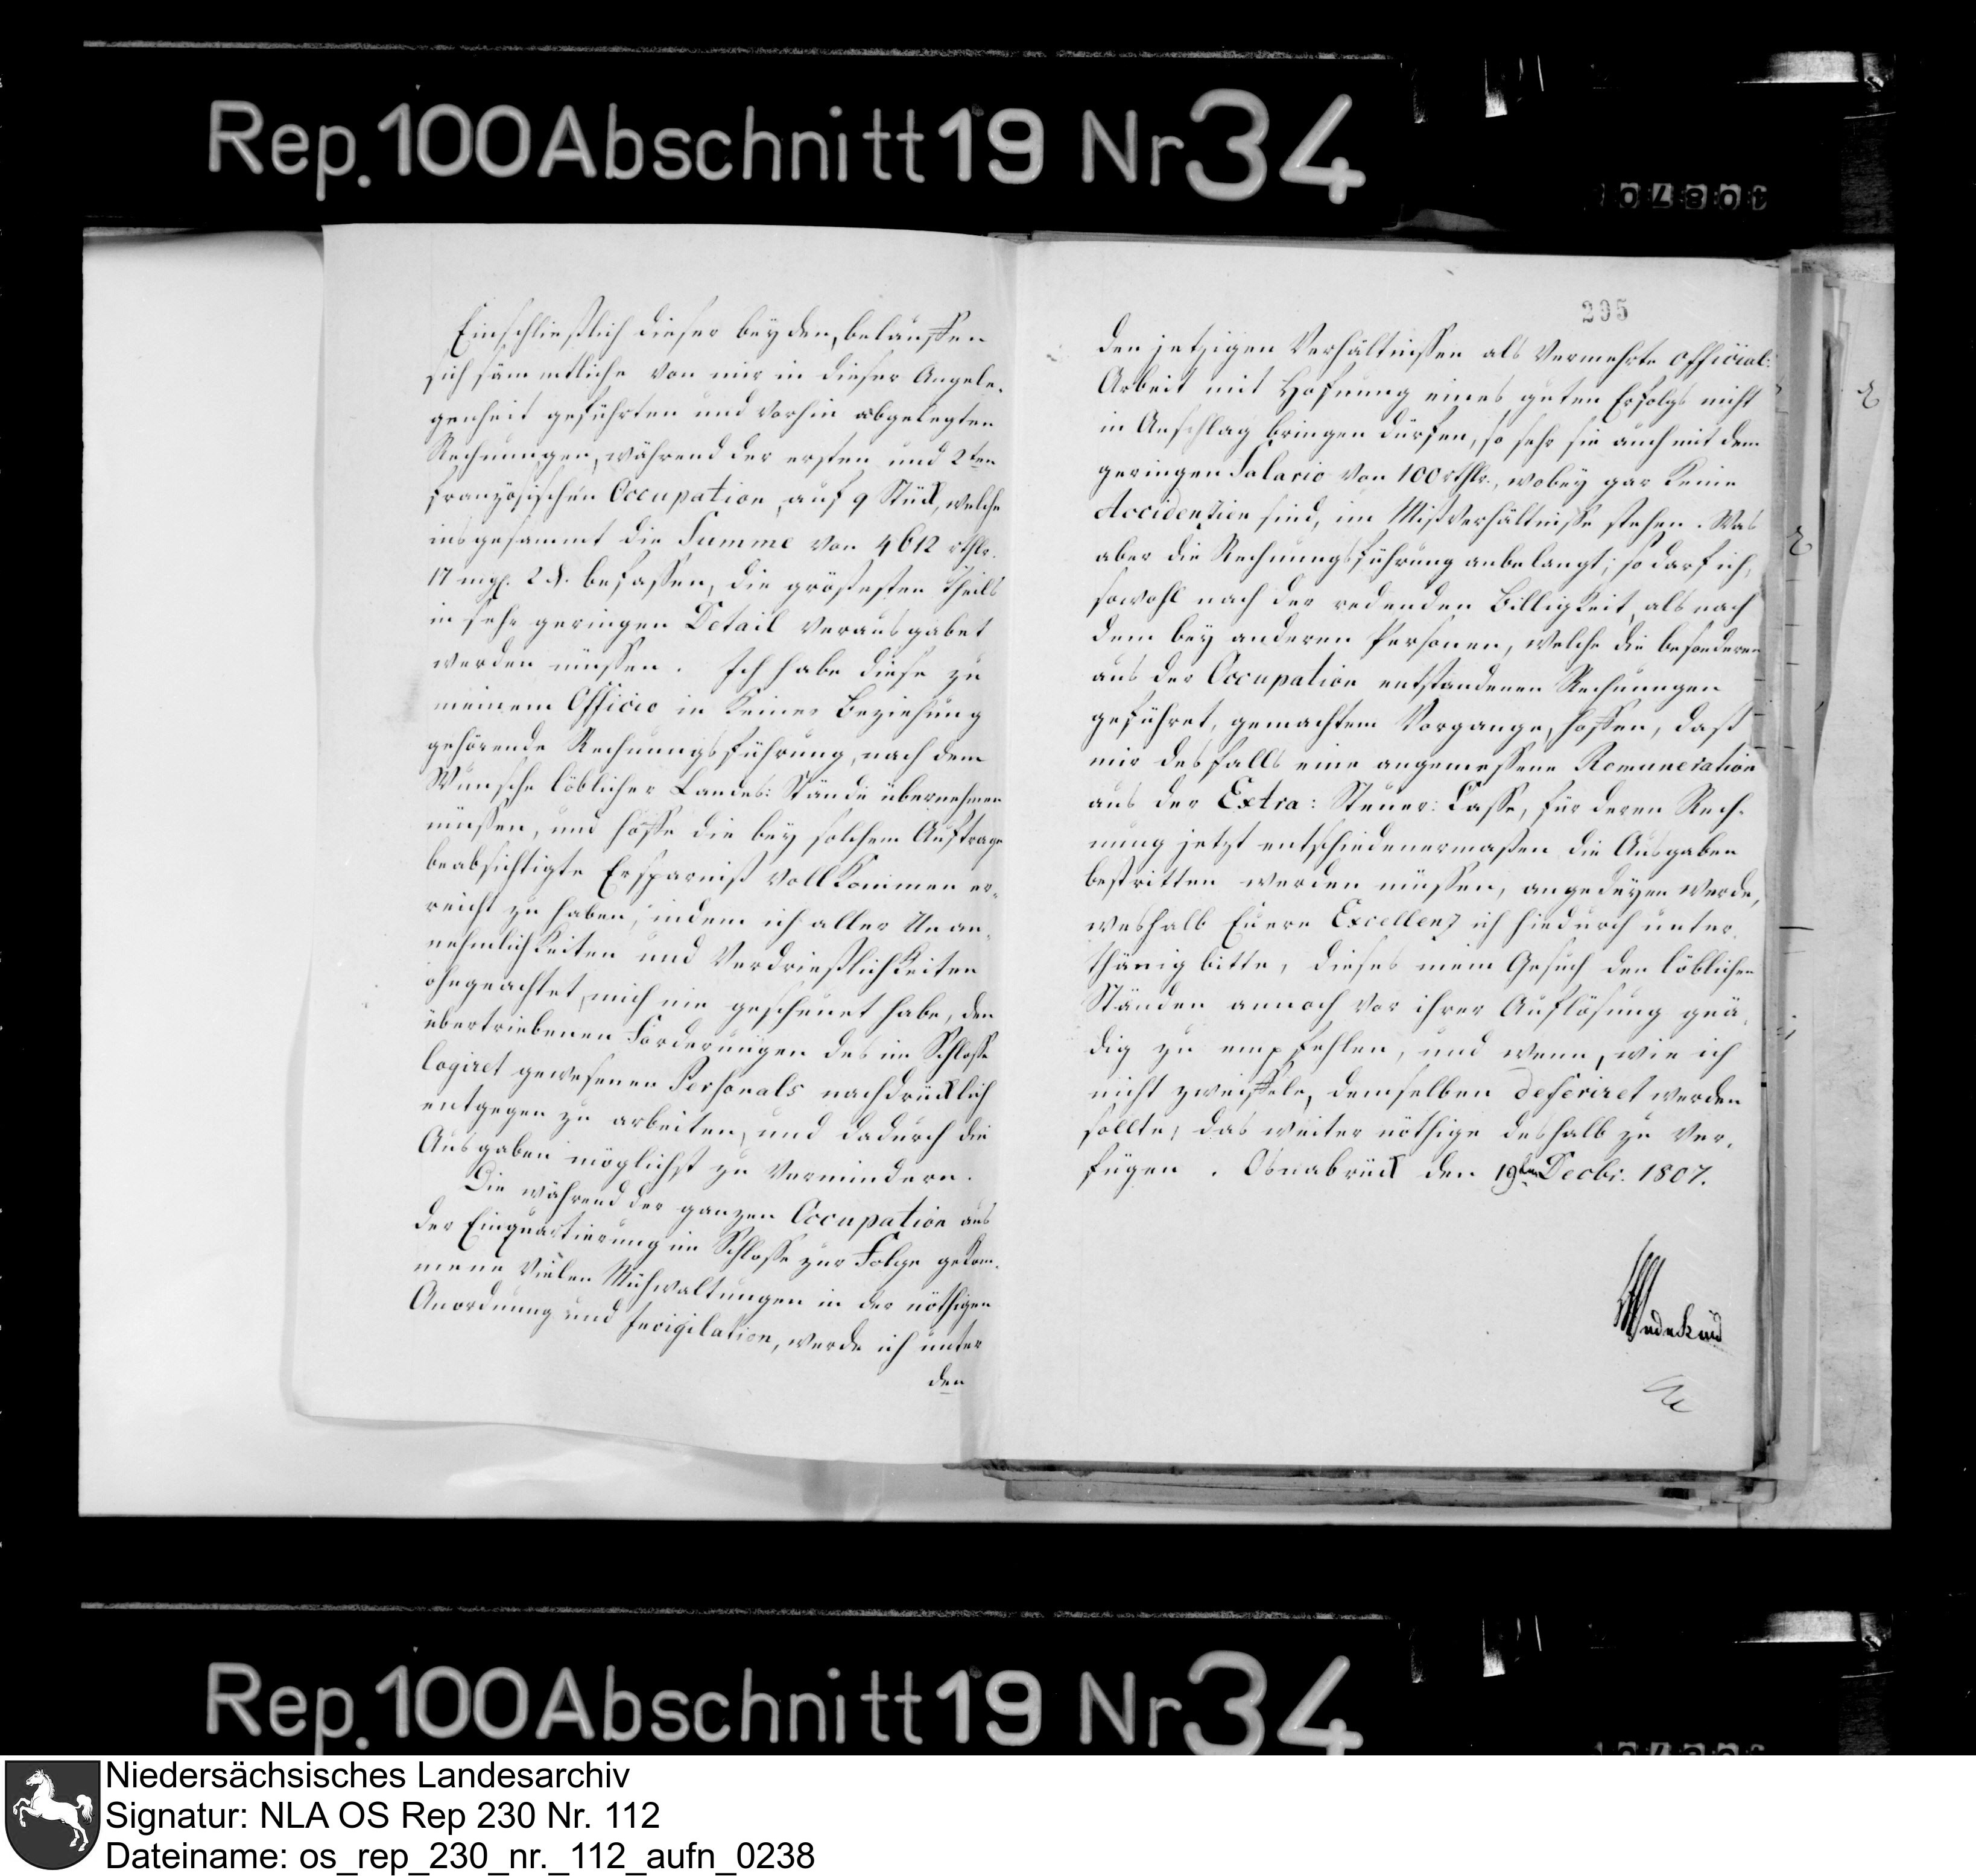 Rep. 100 Abschnitt 19 Nr 34
Einschließlich dieser beyden, belauffen
sich sämmtliche von mir in dieser Angele-
genheit geführten und vorhin abgelegten
Rechnungen, während der ersten und 2ten
französischen Occupation, auf 9 Stück, welche
insgesammt die Summe von 4612 rthlr.
17 mgl. 2 d. befassen, die größesten Theils
in sehr geringen Detail verausgabet
werden müssen. Ich habe diese zu
meinem Officio in keiner Beziehung
gehörende Rechnungsführung, nach dem
Wunsche löblicher Landes: Stände übernehmen
müßen, und hoffe die bey solchem Auftrage
beabsichtigte Ersparniß vollkommen er-
reicht zu haben, indem ich aller Unan-
nehmlichkeiten und Verdrießlichkeiten
ohngeachtet, mich nie gescheuet habe, den
übertriebenen Forderungen des im Schlosse
logiret gewesenen Personals nachdrücklich
entgegen zu arbeiten, und dadurch die
Ausgaben möglichst zu vermindern.
Die während der ganzen Occupation aus
der Einquartierung im Schlosse zur Folge gekom-
mene vielen Mühwaltungen in der nöthigen
Anordnung und Invigilation, werde ich unter
den
295
den jetzigen Verhältnissen als vermehrte Official:
Arbeit mit Hofnung eines guten Erfolgs nicht
in Anschlag bringen dürfen, so sehr sie auch mit dem
geringen Salario von 100 rthlr., wobey gar keine
Accidenzien sind, im Mißverhältnisse stehen. Was
aber die Rechnungsführung anbelangt; so darf ich,
sowohl nach der redenden Billigkeit, als nach
dem bey anderen Personen, welche die besonderen
aus der Occupation entstandenen Rechnungen
geführet, gemachtem Vorgange, hoffen, daß
mir desfalls eine angemessene Remuneration
aus der Extra: Steuer: Casse, für deren Rech-
nung jetzt entschiedenermaßen die Ausgaben
bestritten werden müssen, angedeyen werde,
weshalb Euere Excellenz ich hiedurch unter-
thänig bitte, dieses mein Gesuch den löblichen
Ständen annoch vor ihrer Auflösung gnä-
dig zu empfehlen, und wenn, wie ich
nicht zweiffele, demselben deferiret werden
sollte, das weiter nöthige deshalb zu ver-
fügen. Osnabrück den 19ten Decbr. 1807.
Wedekind
Rep. 100 Abschnitt 19 Nr 34
Niedersächsisches Landesarchiv
Signatur: NLA OS Rep 230 Nr. 112
Dateiname: os_rep_230_nr._112_aufn_0238